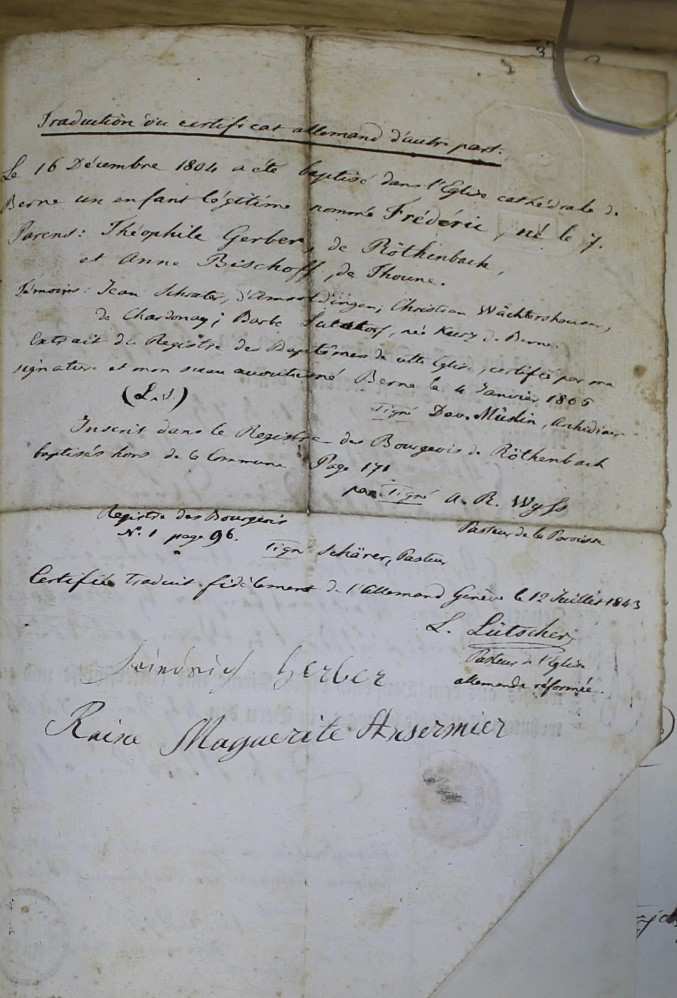 Traduction du certificat allemand d'autre part.
Le 16 Décembre 1804 a été baptisé dans l'Eglise cathédrale de
Berne un enfant légitime nommé Frédéric, né le 7.
Parens: Théophile Gerber, de Röthenbach,
et Anne Bischoff, de Thoune.
Témoins: Jean, Christian Wächtershausen,
de Chardonay; Barbe, née Kury de Berne.
Extrait du Registre des Baptêmes de cette Eglise, certifié par ma
signature et mon sceau accoutumé Berne le 4 Janvier
(L.S)
Signé Dav. Müslin, Archidiacre
Inscrit dans le Registre des Bourgeois de Röthenbach
baptisés hors de la Commune Page 171
par Signé A. R. Wyss
Pasteur de la Paroisse
Registre des Bourgeois
N. 1 page 96.
Signé Schärer, Pasteur
Certifié Traduit fidèlement de l'Allemand Genève le 12 Juillet 1843
L. Lütscher,
Pasteur de l'Eglise
allemande réformée.
Friedrich Gerber
Raise Maguerite Ansermier